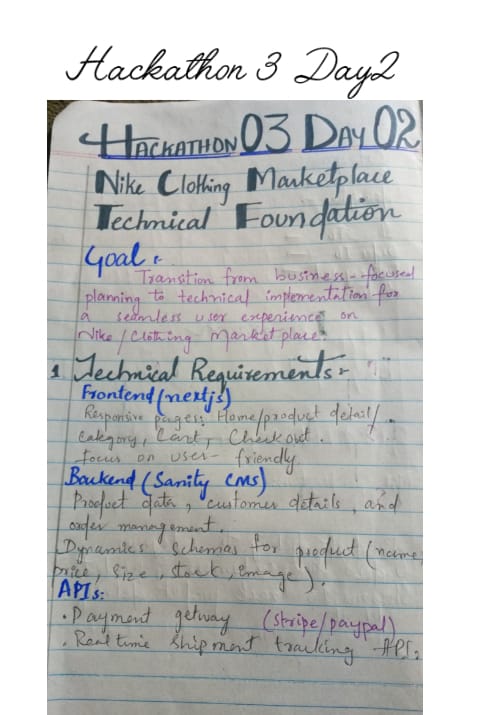 Hackathon 3 Day2
HACKATHON 03 DAY 02
Nike Clothing Marketplace
Technical Foundation
Goal :-
Transition from business-focused
planning to technical implementation for
a seamless user experience on
Nike / Clothing Market place.
1 Technical Requirements :-
Frontend (nextjs)
Responsive pages: Home/product detail/
category, Cart, Checkout.
focus on user- friendly.
Backend (Sanity CMS)
Product data, customer details, and
order management.
Dynamics schemas for product (name
price, size, stock, image).
APIs:
• Payment getway (stripe/paypal)
• Real time Shipment tracking API.